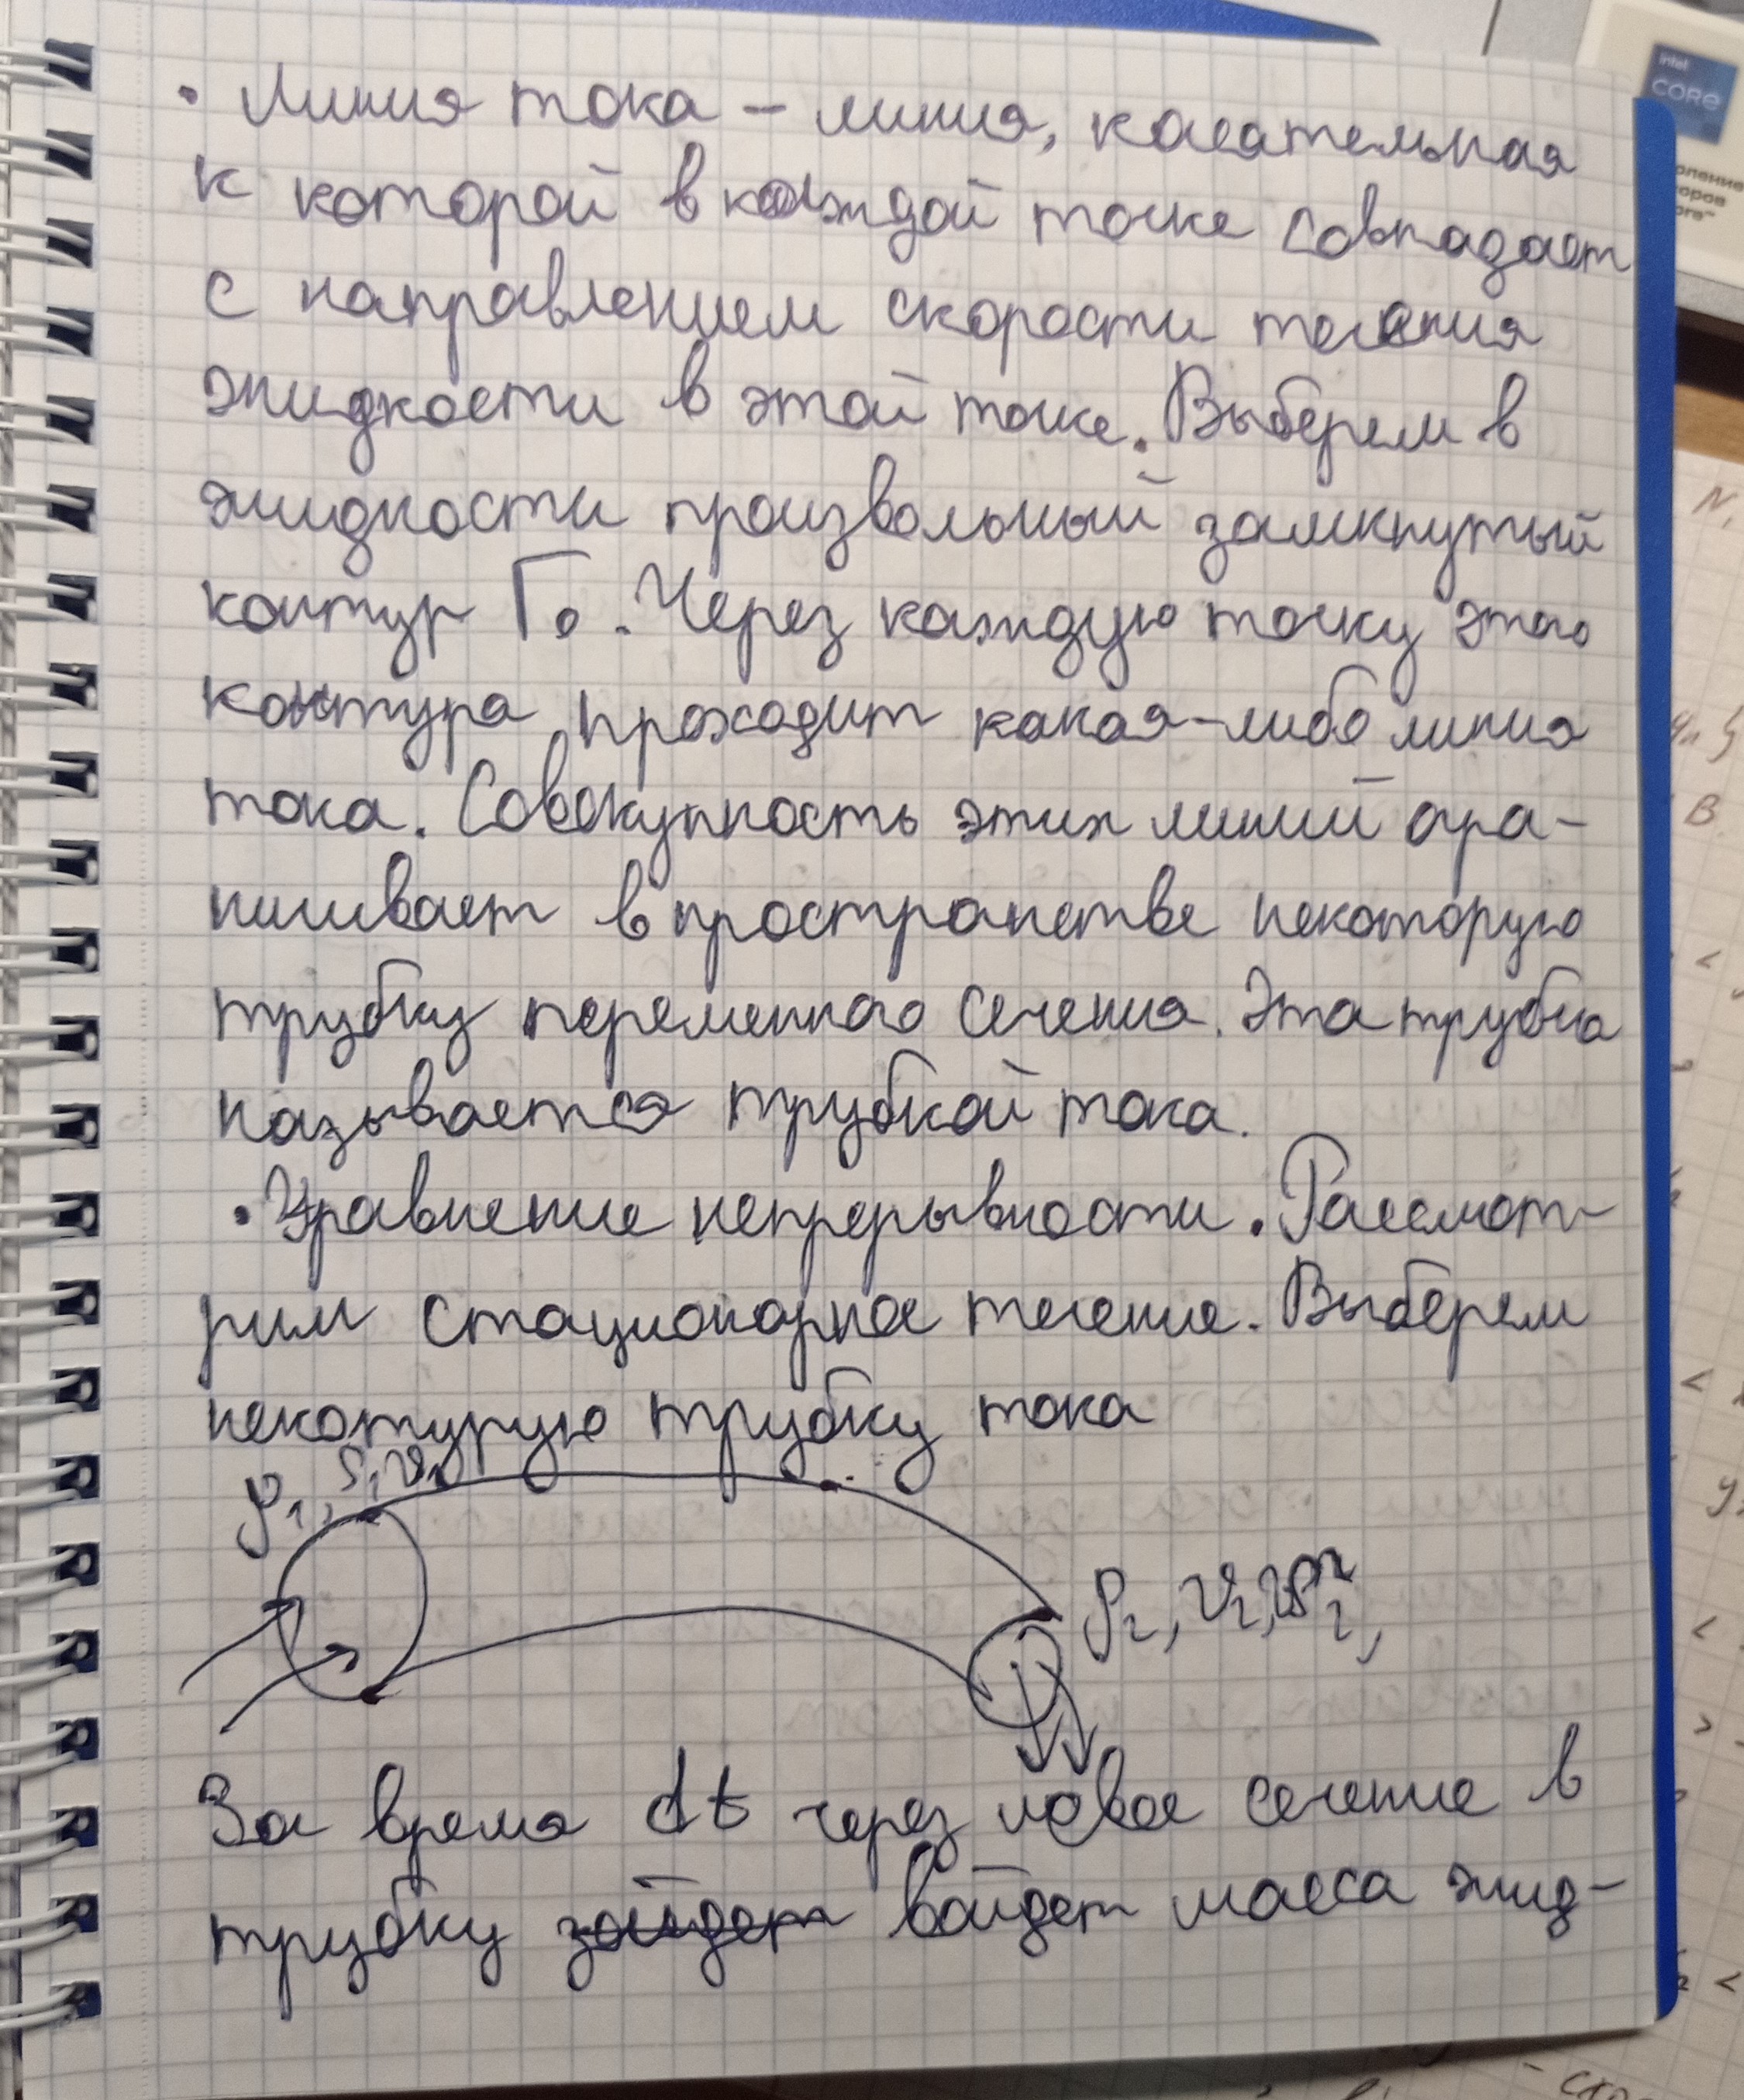 • Линия тока – линия, касательная
к которой в каждой точке совпадает
с направлением скорости течения
жидкости в этой точке. Выберем в
жидкости произвольный замкнутый
контур Г₀. Через каждую точку этого
контура проходит какая-либо линия
тока. Совокупность этих линий огра-
ничивает в пространстве некоторую
трубку переменного сечения. Эта трубка
называется трубкой тока.
• Уравнение непрерывности. Рассмот-
рим стационарное течение. Выберем
некотурую трубку тока
ρ₁, S₁ v₁
ρ₂, v₂,
За время dt через левое сечение в
трубку зайдет войдет масса жид-
intel
CORE